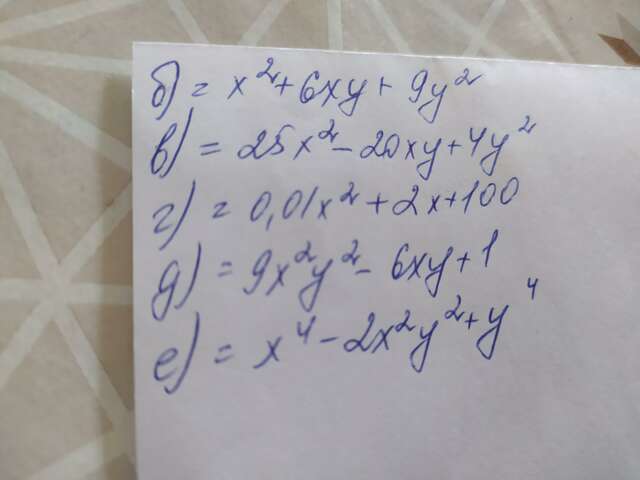 б) = x²+6xy+9y²
в) = 25x²-20xy+4y²
г) = 0,01x²+2x+100
д) = 9x²y²-6xy+1
е) = x⁴-2x²y²+y⁴